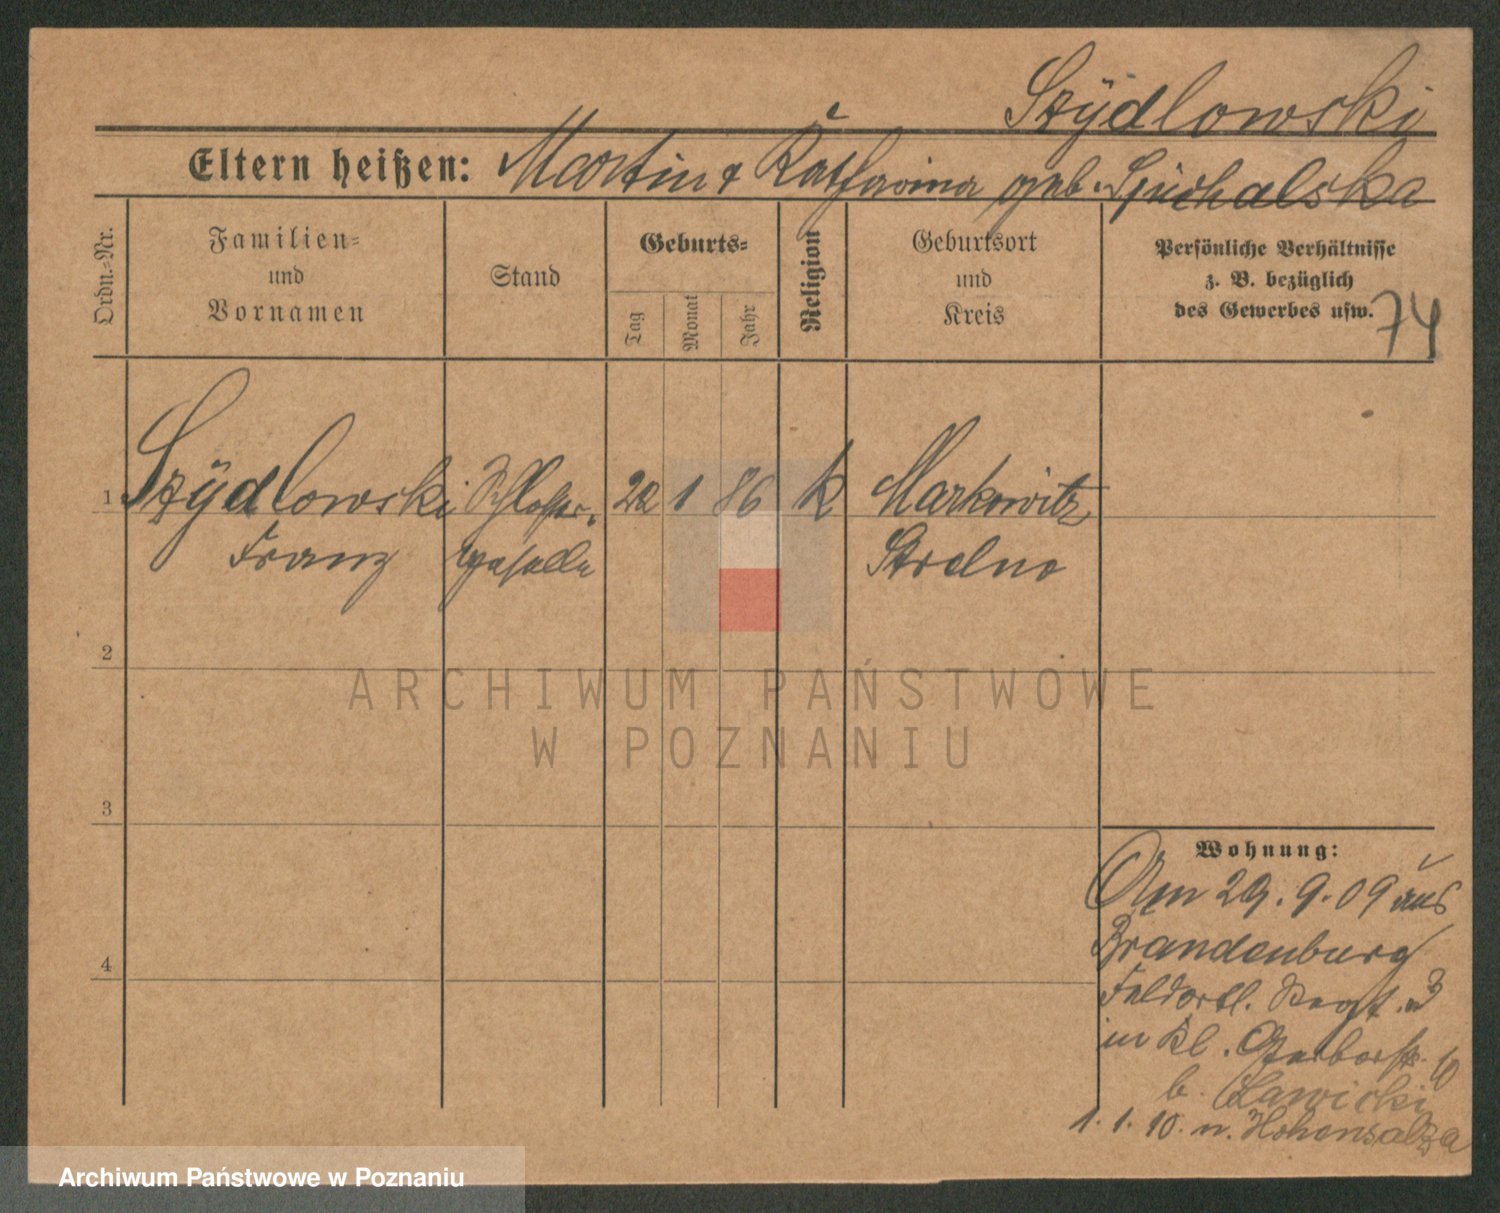 Szÿdlowski
Eltern heißen: Martin & Katharina geb. Spichalska
Ordn.-Nr.
Familien-
und
Vornamen
Stand
Geburts-
Tag
Monat
Jahr
Religion
Geburtsort
und
Kreis
Persönliche Verhältnisse
z. B. bezüglich
des Gewerbes usw.
74
1 Szÿdlowski Schlosser- 22 1 86 k Markowitz
Franz geselle Strelno
2
3
4
Wohnung:
Am 29.9.09 aus
Brandenburg
Feldartl. Regt. 3
in Kl. Gerberstr. 10
b. Lawicki
1.1.10. n. Hohensalza
ARCHIWUM PAŃSTWOWE
W POZNANIU
Archiwum Państwowe w Poznaniu